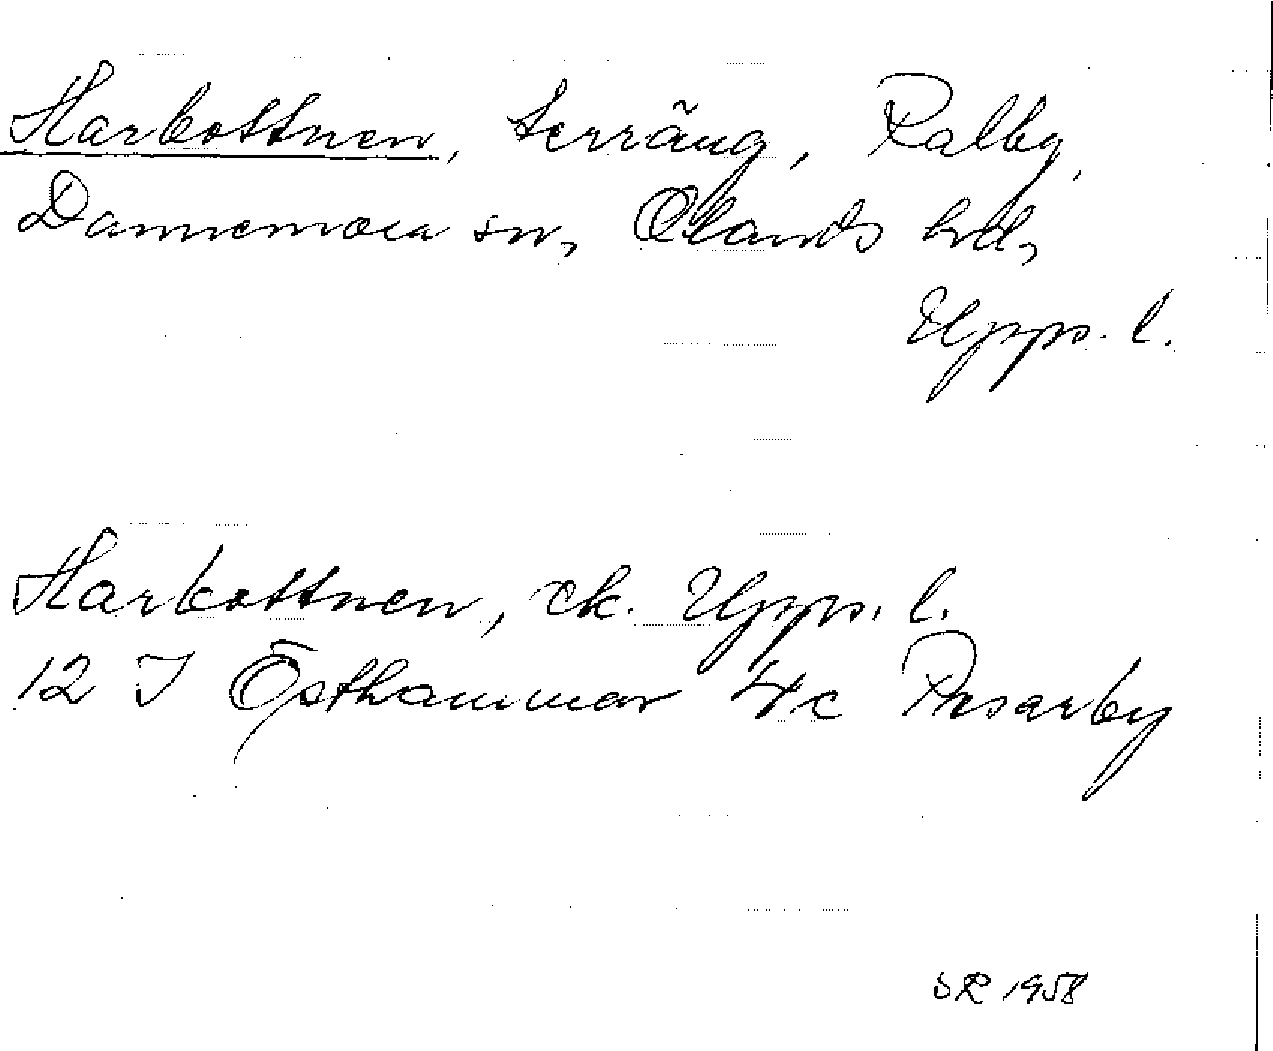 Harbottnen, terräng, Ralby,
Dannemora sn, Olands hd,
Upps. l.
Harbottnen, ek. Upps. l.
12 I Östhammar 4c Rasarby
SR 1958